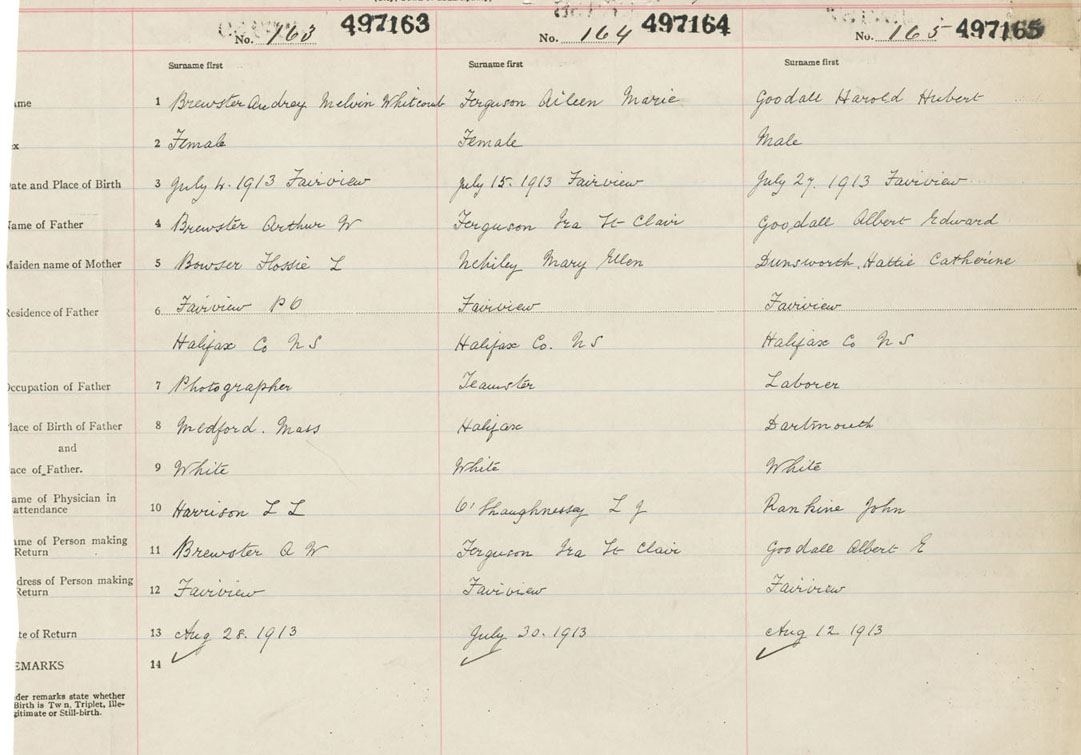 No. 163 497163 No. 164 497164 No. 165 497165
Surname first Surname first Surname first
ame 1 Brewster Audrey Melvin Whitcomb Ferguson Aileen Marie Goodall Harold Hubert
x 2 Female Female Male
ate and Place of Birth 3 July 4. 1913 Fairview July 15. 1913 Fairview July 27. 1913 Fairview
Name of Father 4 Brewster Arthur W Ferguson Ira St Clair Goodall Albert Edward
Maiden name of Mother 5 Bowser Flossie L Mary Ellen Dunsworth, Hattie Catherine
Residence of Father 6 Fairview P O Fairview Fairview
Halifax Co N S Halifax Co. N S Halifax Co N S
Occupation of Father 7 Photographer Teamster Laborer
lace of Birth of Father 8 Medford. Mass Halifax Dartmouth
and
ace of Father. 9 White White White
ame of Physician in
attendance 10 Harrison L L O'Shaughnessy L J Rankine John
ame of Person making
Return 11 Brewster A W Ferguson Ira St Clair Goodall Albert E
dress of Person making
Return 12 Fairview Fairview Fairview
te of Return 13 Aug 28. 1913 July 30. 1913 Aug 12 1913
EMARKS 14
der remarks state whether
Birth is Tw n, Triplet, Ille-
gitimate or Still-birth.